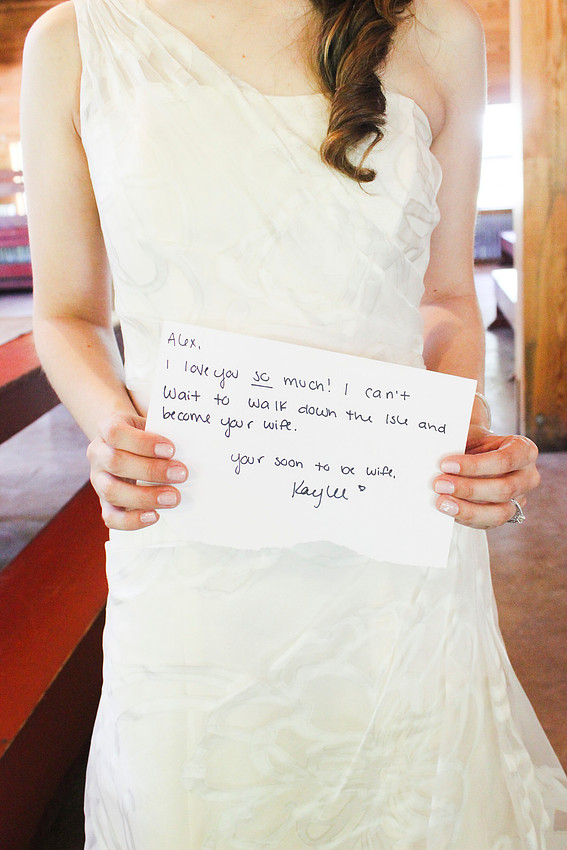 Alex,
I love you so much! I can't
wait to walk down the isle and
become your wife.
your soon to be wife,
Kaylee